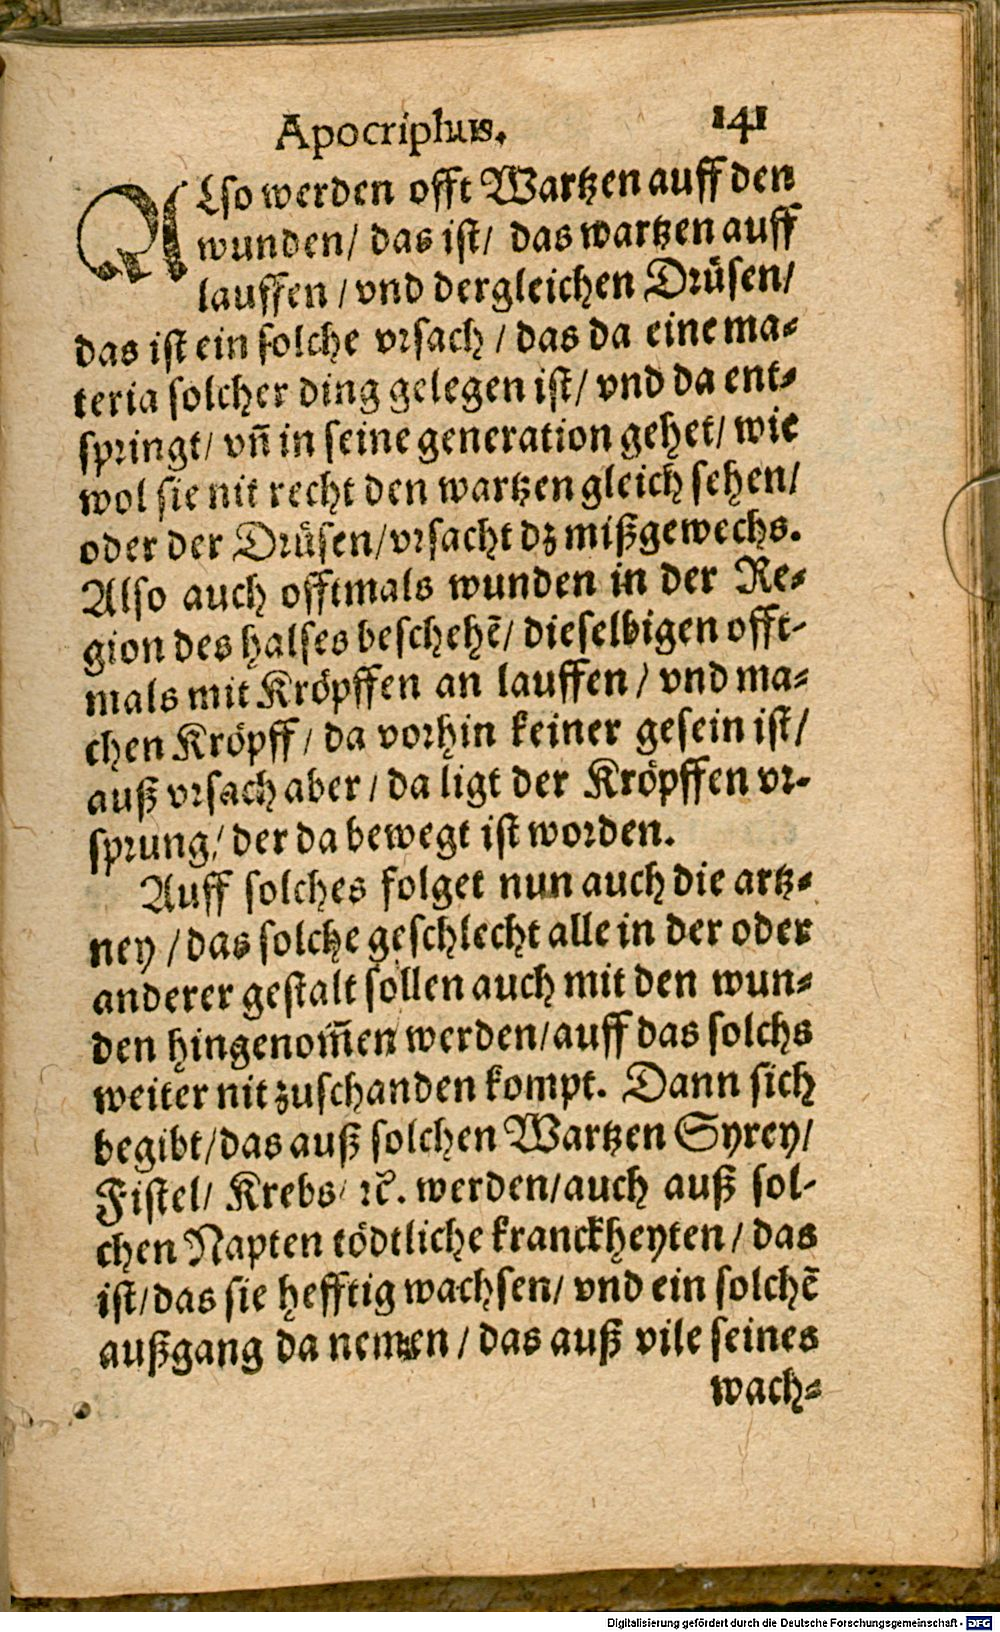 Apocriphus. 141
ALso werden offt Wartzen auff den
wunden/ das ist/ das wartzen auff
lauffen / vnd dergleichen Drüsen/
das ist ein solche vrsach / das da eine ma-
teria solcher ding gelegen ist/ vnd da ent-
springt/ vn̄ in seine generation gehet/ wie
wol sie nit recht den wartzen gleich sehen/
oder der Drüsen/vrsacht dz mißgewechs.
Also auch offtmals wunden in der Re-
gion des halses beschehē/ dieselbigen offt-
mals mit Kröpffen an lauffen / vnd ma-
chen Kröpff/ da vorhin keiner gesein ist/
auß vrsach aber / da ligt der Kröpffen vr-
sprung/ der da bewegt ist worden.
Auff solches folget nun auch die artz-
ney / das solche geschlecht alle in der oder
anderer gestalt sollen auch mit den wun-
den hingenom̄en werden/auff das solchs
weiter nit zuschanden kompt. Dann sich
begibt/das auß solchen Wartzen Syrey/
Fistel/ Krebs/ ꝛc. werden/auch auß sol-
chen Napten tödtliche kranckheyten / das
ist/das sie hefftig wachsen/ vnd ein solchē
außgang da nemen / das auß vile seines
wach-
Digitalisierung gefördert durch die Deutsche Forschungsgemeinschaft - DFG